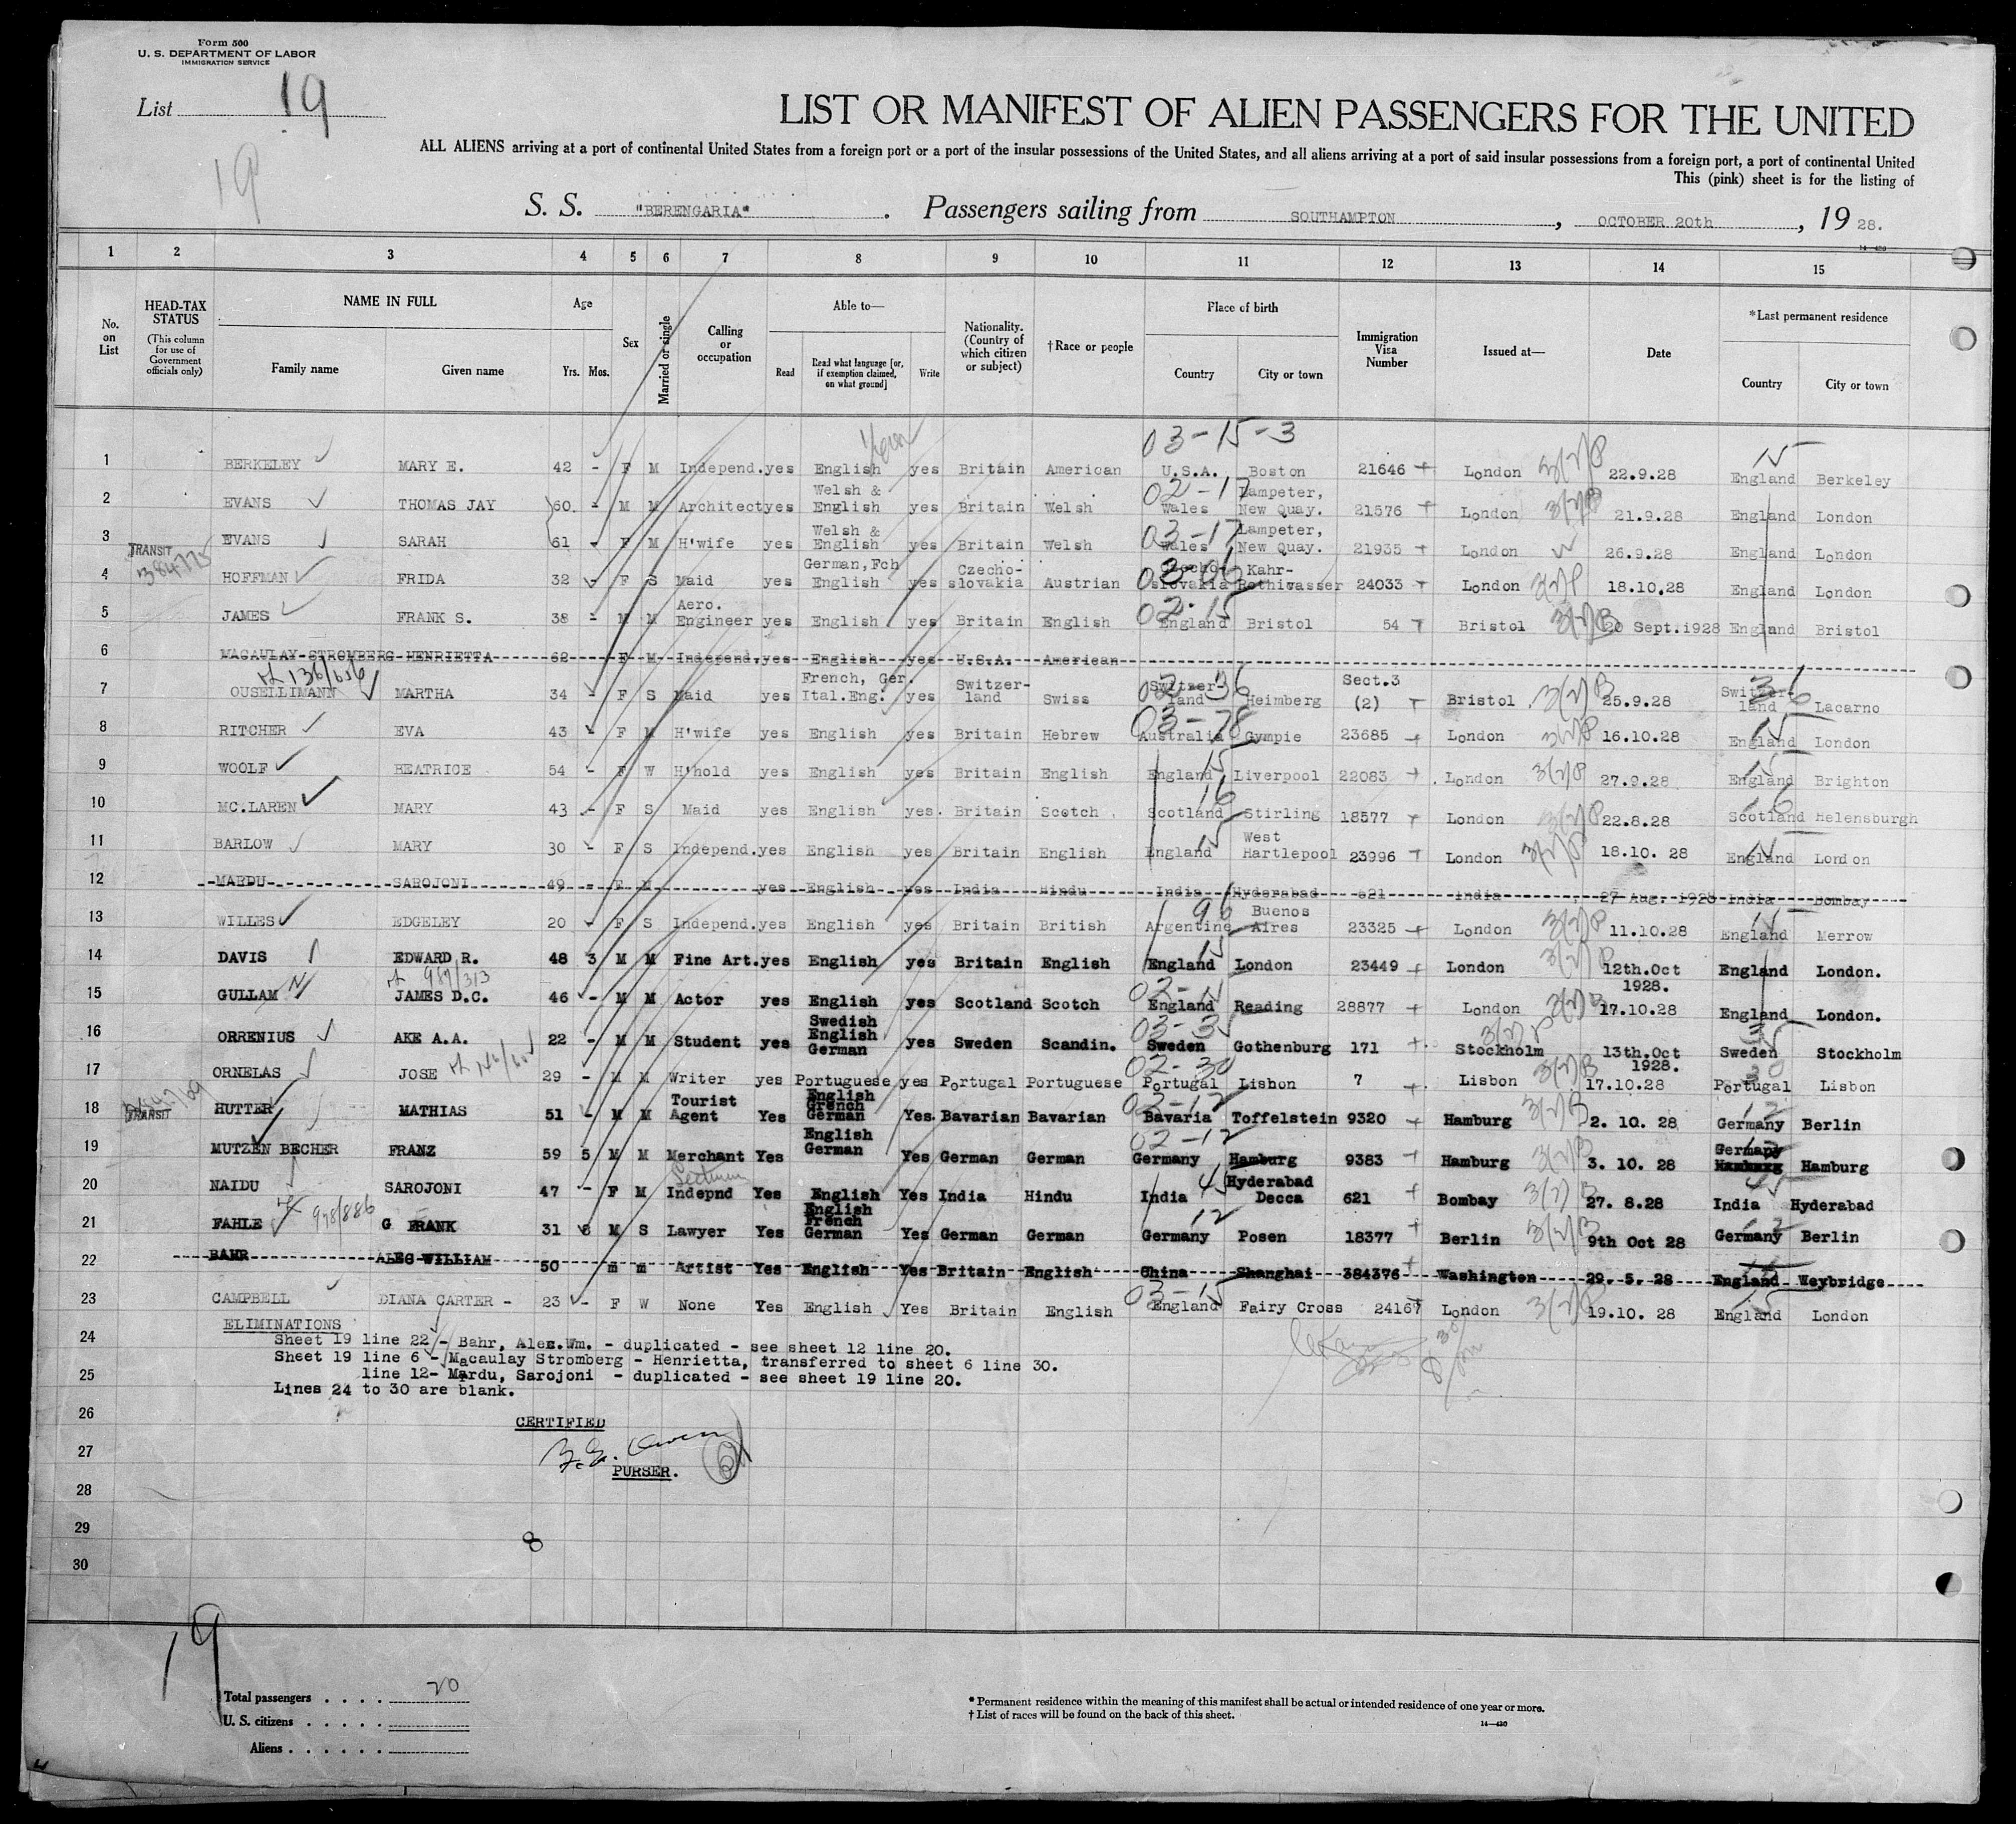 Form 500
U. S. DEPARTMENT OF LABOR
IMMIGRATION SERVICE
List 19
19
LIST OR MANIFEST OF ALIEN PASSENGERS FOR THE UNITED
ALL ALIENS arriving at a port of continental United States from a foreign port or a port of the insular possessions of the United States, and all aliens arriving at a port of said insular possessions from a foreign port, a port of continental United
This (pink) sheet is for the listing of
S. S. "BERENGARIA". Passengers sailing from SOUTHAMPTON, OCTOBER 20th, 19 28.
1 2 3 4 5 6 7 8 9 10 11 12 13 14 15
No. on List
HEAD-TAX STATUS (This column for use of Government officials only)
NAME IN FULL Family name Given name
Age Yrs. Mos.
Sex
Married or single
Calling or occupation
Able to— Read Read what language [or, if exemption claimed, on what ground] Write
Nationality. (Country of which citizen or subject)
†Race or people
Place of birth Country City or town
Immigration Visa Number
Issued at—
Date
*Last permanent residence Country City or town
03-15-3 15
1 BERKELEY MARY E. 42 - F M Independ. yes English yes Britain American U.S.A. Boston 21646 London 3(2)P 22.9.28 England Berkeley
2 EVANS THOMAS JAY 60 - M M Architect yes Welsh & English yes Britain Welsh 02-17 Wales Lampeter, New Quay. 21576 London 3(2)B 21.9.28 England London
3 EVANS SARAH 61 - F M H'wife yes Welsh & English yes Britain Welsh 03-17 Wales Lampeter, New Quay. 21935 London 26.9.28 England London
TRANSIT
4 HOFFMAN FRIDA 32 - F S Maid yes German, Fch English yes Czecho-slovakia Austrian Czecho-slovakia Kahr-Rothwasser 24033 London 3(2)P 18.10.28 England London
5 JAMES FRANK S. 38 - M M Aero. Engineer yes English yes Britain English 02-15 England Bristol 54 Bristol 3(2)B 20 Sept.1928 England Bristol
6 MACAULAY-STROMBERG-HENRIETTA 62 F M Independ. yes English yes U.S.A. American
136/656
7 OUSELLIMANN MARTHA 34 - F S Maid yes French, Ger. Ital.Eng: yes Switzer-land Swiss Switzer-land Heimberg Sect.3 (2) Bristol 3(2)B 25.9.28 Switzer-land Lacarno
8 RITCHER EVA 43 - F M H'wife yes English yes Britain Hebrew 03-78 Australia Gympie 23685 London 3(2)P 16.10.28 15 England London
9 WOOLF BEATRICE 54 - F W H'hold yes English yes Britain English 15 England Liverpool 22083 London 3(2)P 27.9.28 15 England Brighton
10 MC.LAREN MARY 43 - F S Maid yes English yes. Britain Scotch 16 Scotland Stirling 18577 London 3(2)P 22.8.28 16 Scotland Helensburgh
11 BARLOW MARY 30 - F S Independ. yes English yes Britain English 15 England West Hartlepool 23996 London 3(2)P 18.10. 28 15 England London
12 MARDU SAROJONI 49 - F M yes English yes India Hindu India Hyderabad 621 India 27 Aug. 1928 India Bombay
13 WILLES EDGELEY 20 - F S Independ. yes English yes Britain British 96 Argentine Buenos Aires 23325 London 3(2)P 11.10.28 15 England Merrow
14 DAVIS EDWARD R. 48 3 M M Fine Art. yes English yes Britain English 15 England London 23449 London 3(2)P 12th.Oct 1928. England London.
987/313
15 GULLAM JAMES D.C. 46 - M M Actor yes English yes Scotland Scotch England Reading 28877 London 3(2)B 17.10.28 England London.
16 ORRENIUS AKE A.A. 22 - M M Student yes Swedish English German yes Sweden Scandin. 03-35 Sweden Gothenburg 171 Stockholm 3(2)P 13th.Oct 1928. 35 Sweden Stockholm
17 ORNELAS JOSE 29 - M M Writer yes Portuguese yes Portugal Portuguese 02-30 Portugal Lisbon 7 Lisbon 3(2)B 17.10.28 30 Portugal Lisbon
TRANSIT
18 HUTTER MATHIAS 51 - M M Tourist Agent Yes English French German Yes. Bavarian Bavarian 02-12 Bavaria Toffelstein 9320 Hamburg 3(2)B 2. 10. 28 12 Germany Berlin
19 MUTZEN BECHER FRANZ 59 5 M M Merchant Yes English German Yes German German 02-12 Germany Hamburg 9383 Hamburg 3(2)B 3. 10. 28 Germany Hamburg Hamburg
20 NAIDU SAROJONI 47 - F M Indepnd Yes English Yes India Hindu 45 India Hyderabad Decca 621 Bombay 3(2)B 27. 8.28 45 India Hyderabad
978/886
21 FAHLE G FRANK 31 8 M S Lawyer Yes English French German Yes German German 12 Germany Posen 18377 Berlin 3(2)B 9th Oct 28 12 Germany Berlin
22 BAHR ALEC WILLIAM 50 m m Artist Yes English Yes Britain English China Shanghai 384376 Washington 29. 5. 28 England Weybridge
23 CAMPBELL DIANA CARTER - 23 - F W None Yes English Yes Britain English 03-15 England Fairy Cross 24167 London 3(2)P 19.10. 28 15 England London
ELIMINATIONS
24 Sheet 19 line 22 - Bahr, Alec.Wm. - duplicated - see sheet 12 line 20.
Sheet 19 line 6 - Macaulay Stromberg - Henrietta, transferred to sheet 6 line 30.
25 line 12- Mardu, Sarojoni - duplicated - see sheet 19 line 20.
Lines 24 to 30 are blank.
26
CERTIFIED
27
PURSER.
28
29
8
30
19
Total passengers . . . . 20
U. S. citizens . . . . .
Aliens . . . . . .
* Permanent residence within the meaning of this manifest shall be actual or intended residence of one year or more.
† List of races will be found on the back of this sheet.
14—430